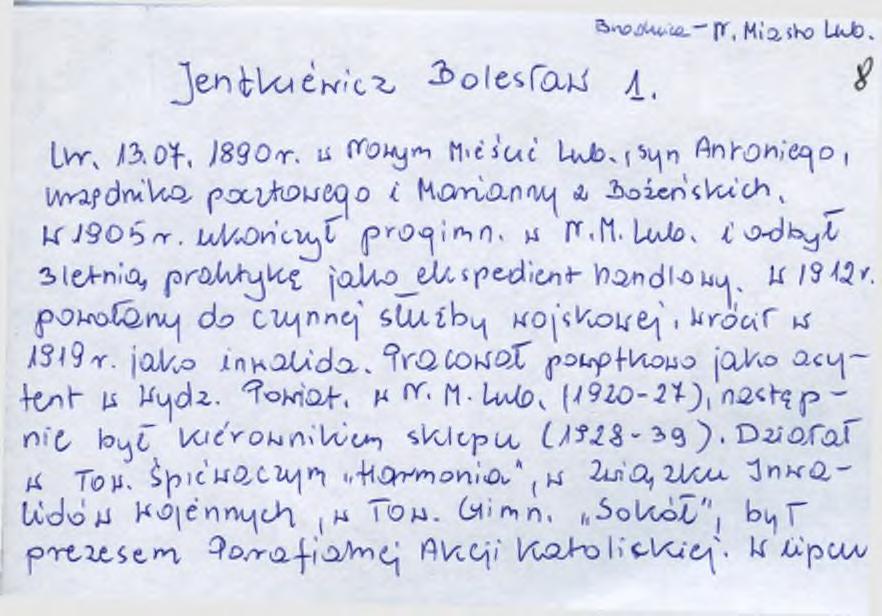 Brodnica – N. Miasto Lub.
8
Jentkiewicz Bolesław 1.
Ur. 13.07.1890 r. w Nowym Mieście Lub., syn Antoniego,
urzędnika pocztowego i Marianny z Bożeńskich.
W 1905 r. ukończył progimn. w N.M. Lub. i odbył
3letnią praktykę jako ekspedient handlowy. W 1912 r.
powołany do czynnej służby wojskowej, wrócił w
1919 r. jako inwalida. Pracował początkowo jako asy-
tent w Wydz. Powiat. w N. M. Lub. (1920-27), następ-
nie był kierownikiem sklepu (1928-39). Działał
w Tow. Śpiewaczym "Harmonia", w Związku Inwa-
lidów Wojennych, w Tow. Gimn. „Sokół", był
prezesem Parafialnej Akcji Katolickiej. W lipcu